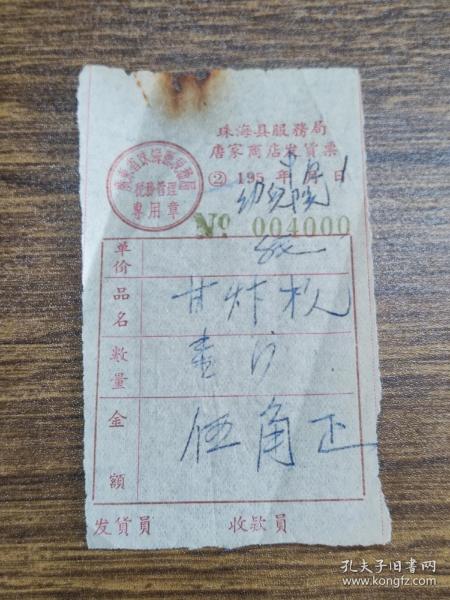 珠海县服務局
唐家商店发貨票
② 195 年 月 日
幼儿院
税務管理
專用章
No 004000
单价
品名
甘炸杋
数量
壹斤
金額
伍角正
发貨員 收款員
孔夫子旧书网
www.kongfz.com